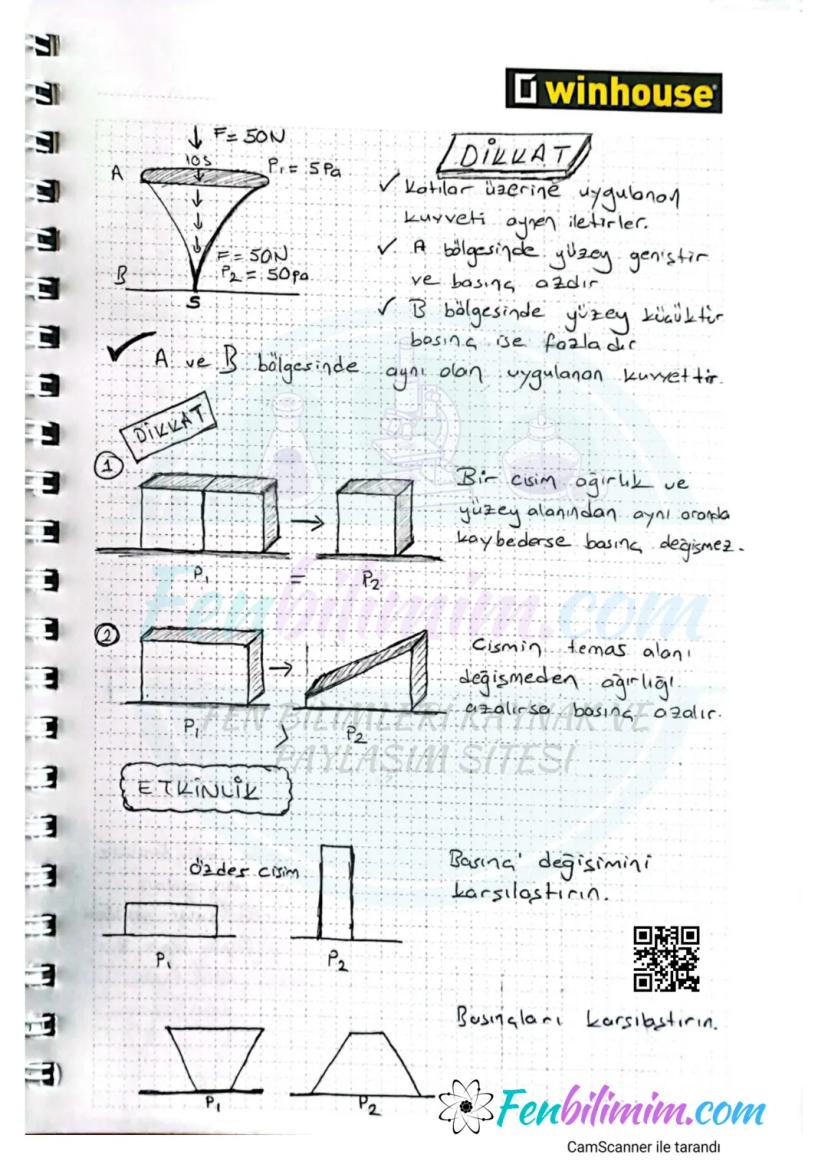 winhouse
F=50N
A
10S
P₁ = 5Pa
F=50N
P₂ = 50pa
B
S
DİKKAT
✓ Katılar üzerine uygulanan
kuvveti aynen iletirler.
✓ A bölgesinde yüzey geniştir
ve basınç azdır
✓ B bölgesinde yüzey küçüktür
basınç ise fazladır
✓ A ve B bölgesinde aynı olan uygulanan kuvvettir.
DİKKAT
1
Bir cisim ağırlık ve
yüzey alanından aynı oranda
kaybederse basınç değişmez.
P₁ = P₂
Fenbilimim.com
2
Cismin temas alanı
değişmeden ağırlığı
azalırsa basınç azalır.
P₁ > P₂
FEN BİLİMLERİ KAYNAK VE
PAYLAŞIM SİTESİ
ETKİNLİK
özdeş cisim
Basınç değişimini
karşılaştırın.
P₁
P₂
Basınçları karşılaştırın.
P₁
P₂
Fenbilimim.com
CamScanner ile tarandı